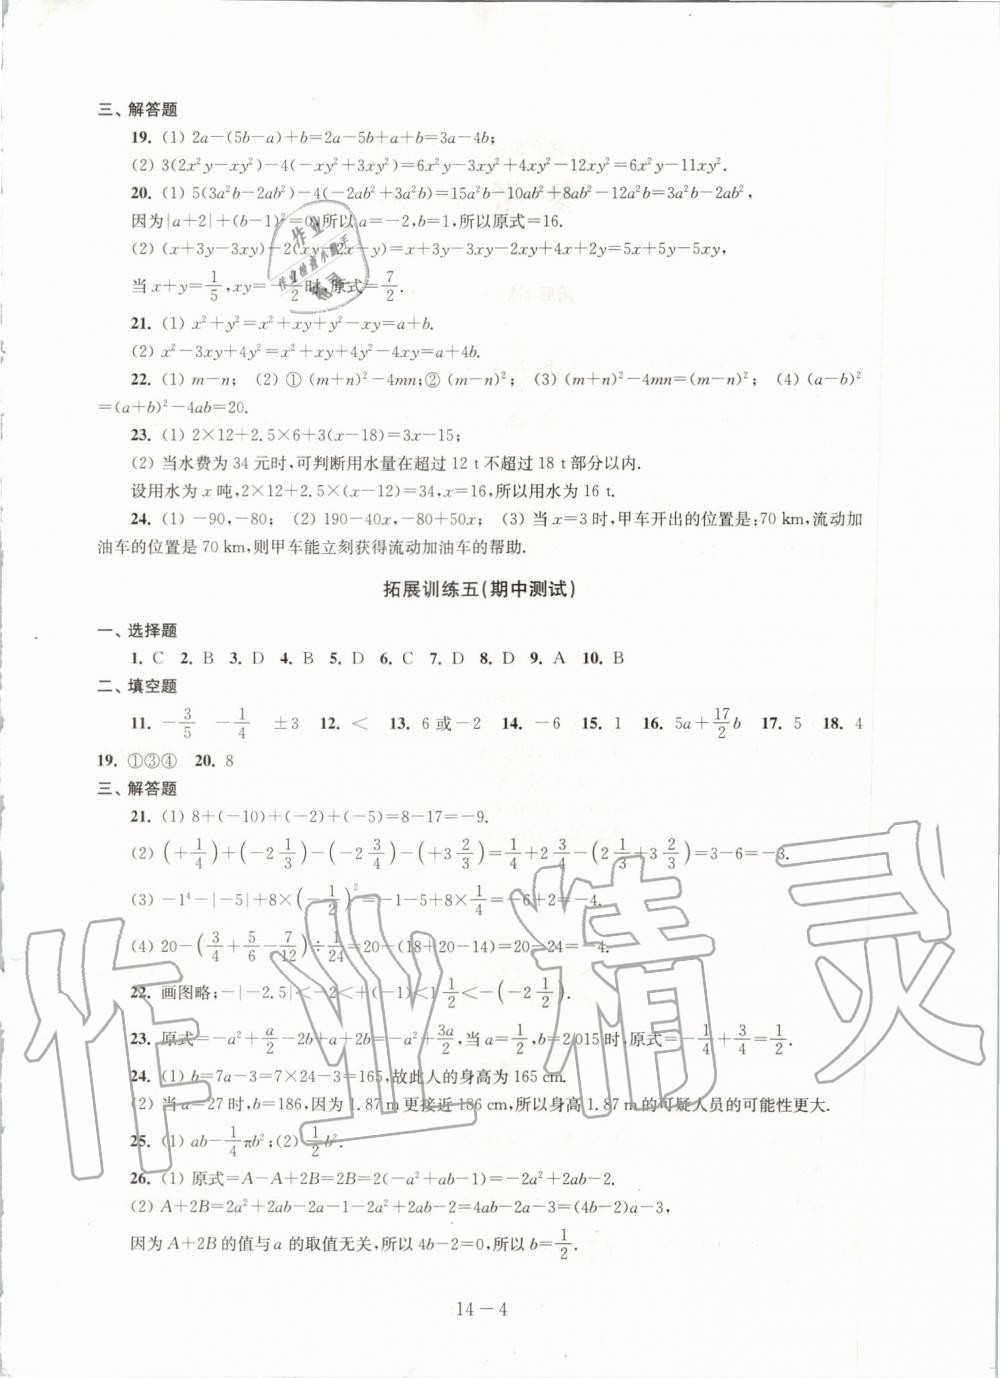 三、解答题
19. (1) 2a－(5b－a)＋b＝2a－5b＋a＋b＝3a－4b;
(2) 3(2x²y－xy²)－4(－xy²＋3xy²)＝6x²y－3xy²＋4xy²－12xy²＝6x²y－11xy².
20. (1) 5(3a²b－2ab²)－4(－2ab²＋3a²b)＝15a²b－10ab²＋8ab²－12a²b＝3a²b－2ab²,
因为|a＋2|＋(b－1)²＝0,所以a＝－2,b＝1,所以原式＝16.
(2) (x＋3y－3xy)－2(xy－2x－y)＝x＋3y－3xy－2xy＋4x＋2y＝5x＋5y－5xy,
当x＋y＝1/5,xy＝－1/2时,原式＝7/2.
21. (1) x²＋y²＝x²＋xy＋y²－xy＝a＋b.
(2) x²－3xy＋4y²＝x²＋xy＋4y²－4xy＝a＋4b.
22. (1) m－n; (2) ① (m＋n)²－4mn;② (m－n)²; (3) (m＋n)²－4mn＝(m－n)²; (4) (a－b)²
＝(a＋b)²－4ab＝20.
23. (1) 2×12＋2.5×6＋3(x－18)＝3x－15;
(2) 当水费为34元时,可判断用水量在超过12 t不超过18 t部分以内.
设用水为x吨,2×12＋2.5×(x－12)＝34,x＝16,所以用水为16 t.
24. (1) －90,－80; (2) 190－40x,－80＋50x; (3) 当x＝3时,甲车开出的位置是:70 km,流动加
油车的位置是70 km,则甲车能立刻获得流动加油车的帮助.
拓展训练五(期中测试)
一、选择题
1. C 2. B 3. D 4. B 5. D 6. C 7. D 8. D 9. A 10. B
二、填空题
11. －3/5 －1/4 ±3 12. ＜ 13. 6或－2 14. －6 15. 1 16. 5a＋17/2b 17. 5 18. 4
19. ①③④ 20. 8
三、解答题
21. (1) 8＋(－10)＋(－2)＋(－5)＝8－17＝－9.
(2) (＋1/4)＋(－2 1/3)－(－2 3/4)－(＋3 2/3)＝1/4＋2 3/4－(2 1/3＋3 2/3)＝3－6＝－3.
(3) －1⁴－|－5|＋8×(－1/2)²＝－1－5＋8×1/4＝－6＋2＝－4.
(4) 20－(3/4＋5/6－7/12)÷1/24＝20－(18＋20－14)＝20－24＝－4.
22. 画图略;－|－2.5|＜－2＜＋(－1)＜1 1/2＜－(－2 1/2).
23. 原式＝－a²＋a/2－2b＋a＋2b＝－a²＋3a/2,当a＝1/2,b＝2 015时,原式＝－1/4＋3/4＝1/2.
24. (1) b＝7a－3＝7×24－3＝165,故此人的身高为165 cm.
(2) 当a＝27时,b＝186,因为1.87 m更接近186 cm,所以身高1.87 m的可疑人员的可能性更大.
25. (1) ab－1/4πb²;(2) 1/2b².
26. (1) 原式＝A－A＋2B＝2B＝2(－a²＋ab－1)＝－2a²＋2ab－2.
(2) A＋2B＝2a²＋2ab－2a－1－2a²＋2ab－2＝4ab－2a－3＝(4b－2)a－3,
因为A＋2B的值与a的取值无关,所以4b－2＝0,所以b＝1/2.
14－4
作业精灵